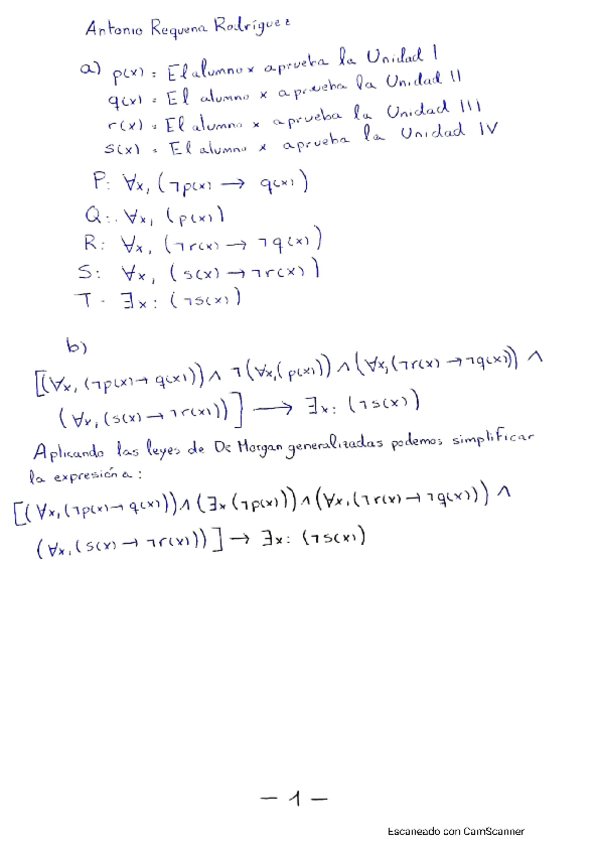 Antonio Requena Rodríguez
a) p(x) = El alumno x aprueba la Unidad I
q(x) = El alumno x aprueba la Unidad II
r(x) = El alumno x aprueba la Unidad III
s(x) = El alumno x aprueba la Unidad IV
P: ∀x, (¬p(x) → q(x))
Q: ∀x, (p(x))
R: ∀x, (¬r(x) → ¬q(x))
S: ∀x, (s(x) → ¬r(x))
T: ∃x: (¬s(x))
b)
[(∀x, (¬p(x) → q(x))) ∧ ¬(∀x,(p(x))) ∧ (∀x,(¬r(x) → ¬q(x))) ∧
(∀x, (s(x) → ¬r(x)))] → ∃x: (¬s(x))
Aplicando las leyes de De Morgan generalizadas podemos simplificar
la expresión a:
[(∀x,(¬p(x) → q(x))) ∧ (∃x (¬p(x))) ∧ (∀x, (¬r(x) → ¬q(x))) ∧
(∀x,(s(x) → ¬r(x)))] → ∃x: (¬s(x))
- 1 -
Escaneado con CamScanner